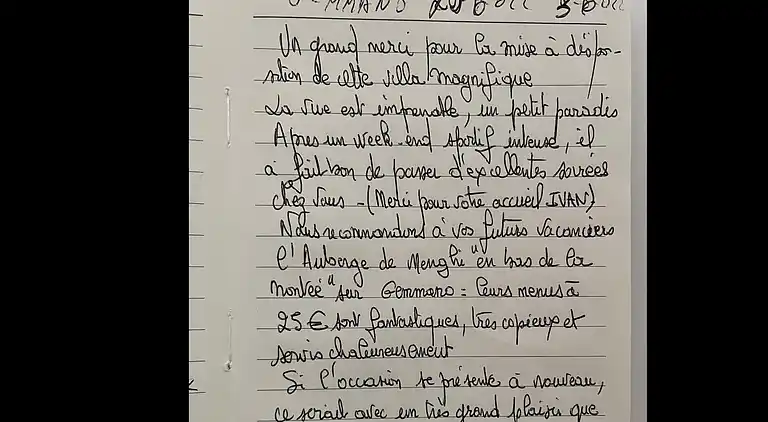 Un grand merci pour la mise à dispo-
sition de cette villa magnifique
La vue est imprenable, un petit paradis
Apres un week-end sportif intense, il
a fait bon de passer d'excellentes soirées
chez vous - (Merci pour votre accueil IVAN)
Nous recommandons à vos futurs vacanciers
l'Auberge de Menghi "en bas de la
montée" sur Gemmano : leurs menus à
25€ sont fantastiques, très copieux et
servis chaleureusement
Si l'occasion se présente à nouveau,
ce serait avec un très grand plaisir que